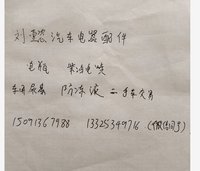 刘 汽车电器配件
电瓶 柴油电喷
车用尿素 防冻液 二手车交易
15091367988 13325349716 (微信同号)